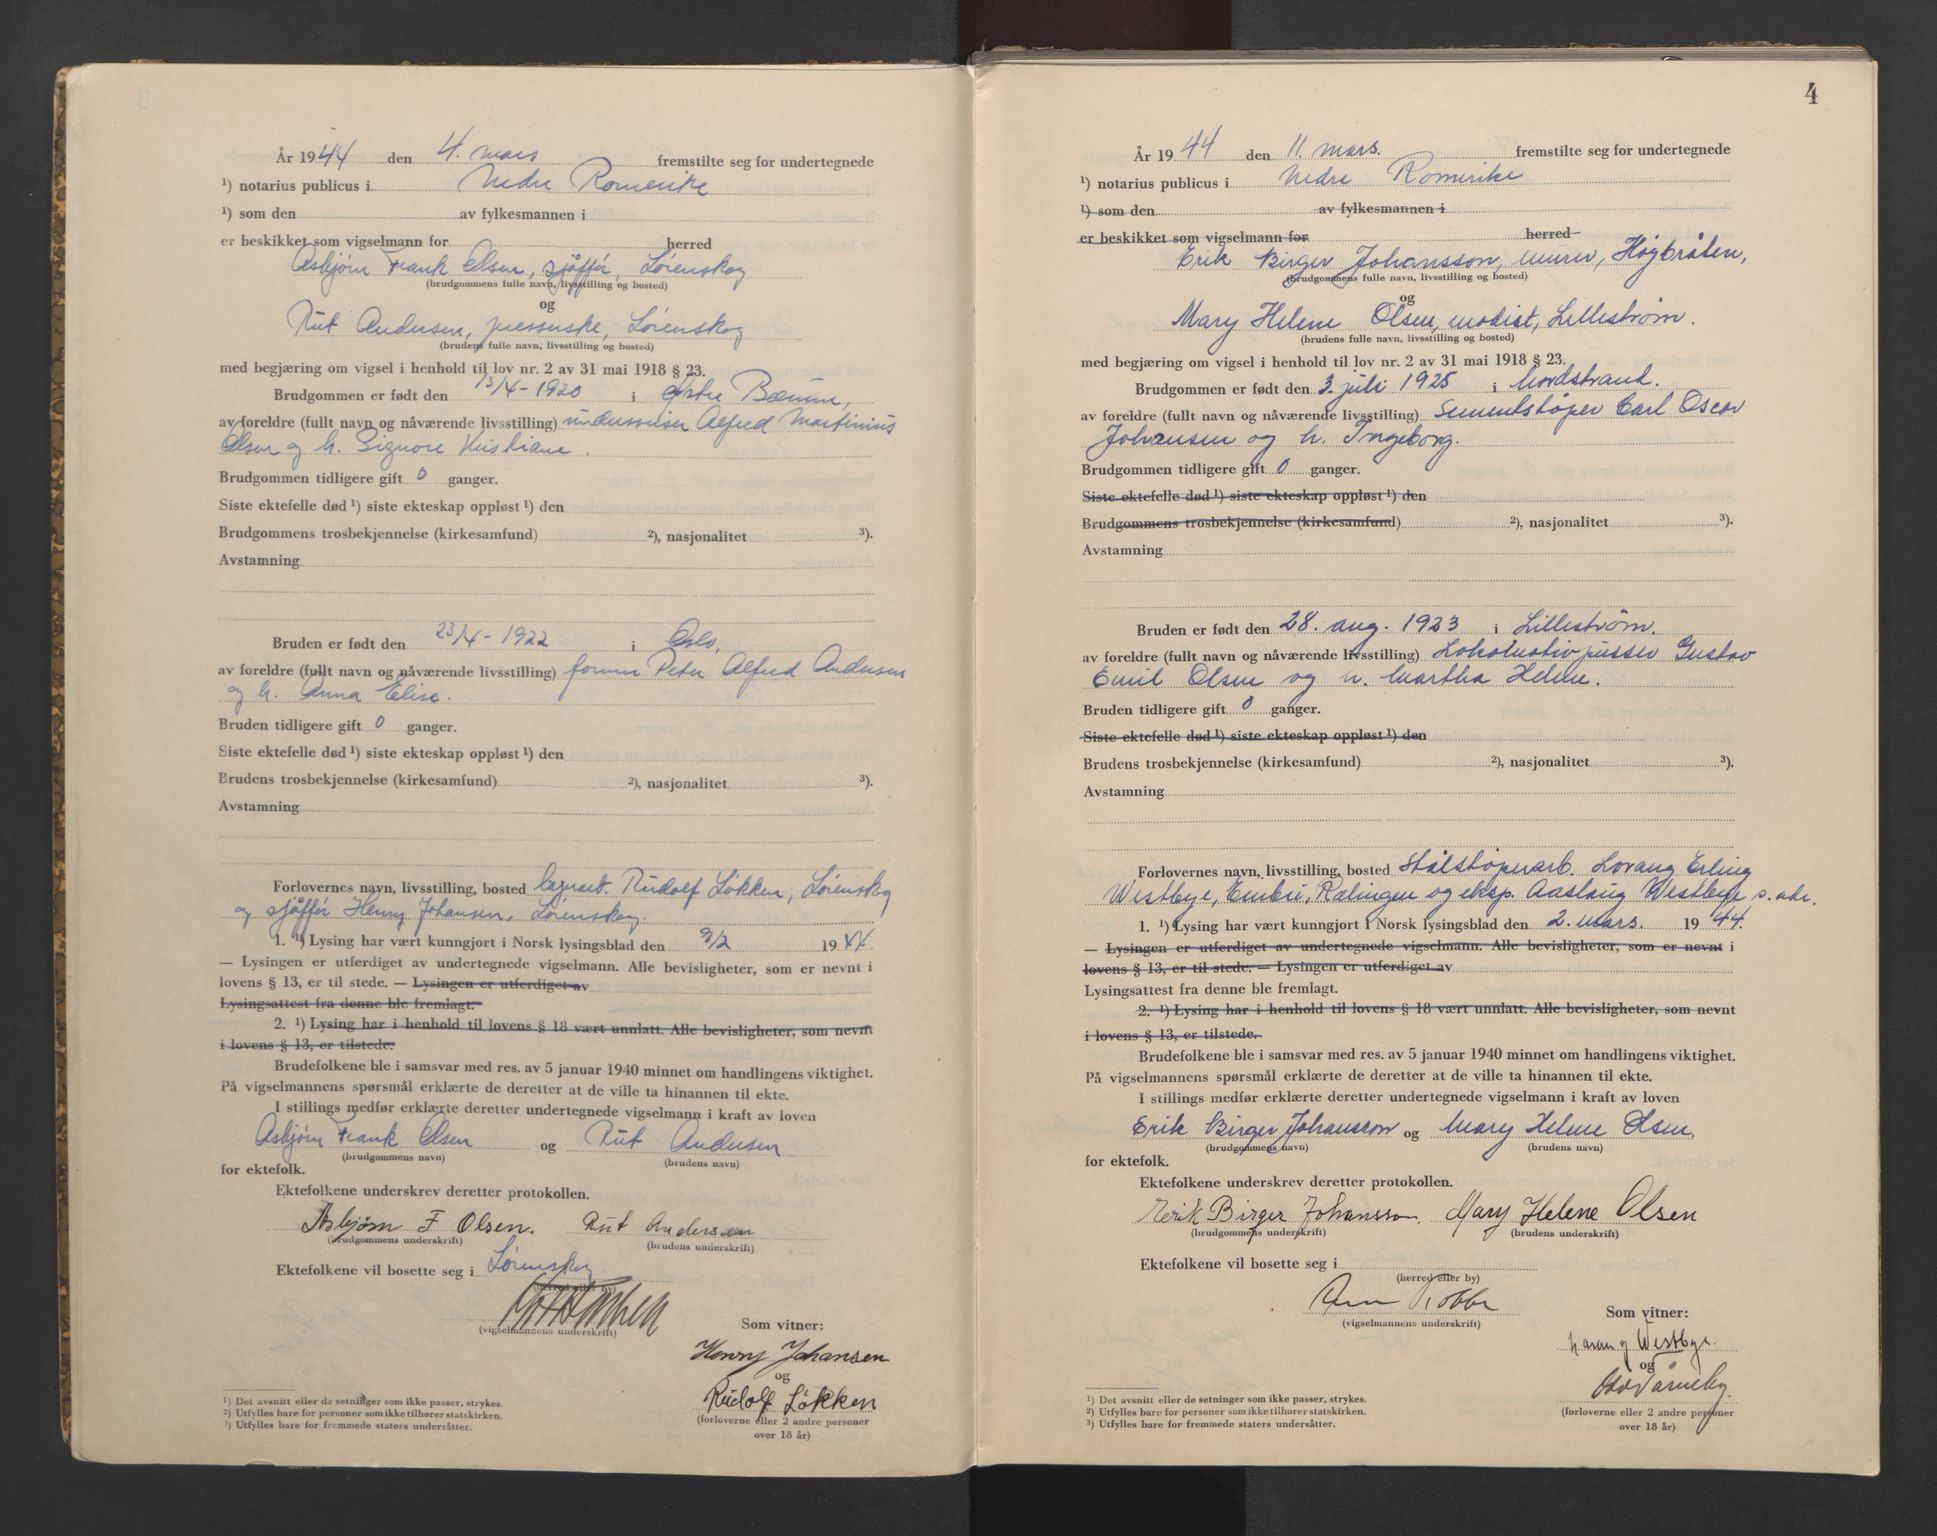 År 1944 den 4. mars fremstilte seg for undertegnede
¹) notarius publicus i Nedre Romerike
¹) som den av fylkesmannen i
er beskikket som vigselmann for herred
Asbjørn Frank Olsen, sjåffør, Lørenskog
(brudgommens fulle navn, livsstilling og bosted)
og
Rut Andersen, presserske, Lørenskog
(brudens fulle navn, livsstilling og bosted)
med begjæring om vigsel i henhold til lov nr. 2 av 31 mai 1918 § 23.
Brudgommen er født den 13/4-1920 i Østre Bærum,
av foreldre (fullt navn og nåværende livsstilling) underviser Alfred Martinius
Olsen og h. Signore Kristiane.
Brudgommen tidligere gift 0 ganger.
Siste ektefelle død ¹) siste ekteskap oppløst ¹) den
Brudgommens trosbekjennelse (kirkesamfund) ²), nasjonalitet ³).
Avstamning
Bruden er født den 23/4-1922 i Oslo,
av foreldre (fullt navn og nåværende livsstilling) former Peter Alfred Andersen
og h. Anna Elise.
Bruden tidligere gift 0 ganger.
Siste ektefelle død ¹) siste ekteskap oppløst ¹) den
Brudens trosbekjennelse (kirkesamfund) ²), nasjonalitet ³).
Avstamning
Forlovernes navn, livsstilling, bosted lagerarb. Rudolf Løkken, Lørenskog
og sjåffør Henry Johansen, Lørenskog.
1. ¹) Lysing har vært kunngjort i Norsk lysingsblad den 9/2 1944
— Lysingen er utferdiget av undertegnede vigselmann. Alle bevisligheter, som er nevnt i
lovens § 13, er til stede. — Lysingen er utferdiget av
Lysingsattest fra denne ble fremlagt.
2. ¹) Lysing har i henhold til lovens § 18 vært unnlatt. Alle bevisligheter, som nevnt
i lovens § 13, er tilstede.
Brudefolkene ble i samsvar med res. av 5 januar 1940 minnet om handlingens viktighet.
På vigselmannens spørsmål erklærte de deretter at de ville ta hinannen til ekte.
I stillings medfør erklærte deretter undertegnede vigselmann i kraft av loven
Asbjørn Frank Olsen og Rut Andersen
(brudgommens navn) (brudens navn)
for ektefolk.
Ektefolkene underskrev deretter protokollen.
Asbjørn F Olsen. Rut Andersen
(brudgommens underskrift) (brudens underskrift)
Ektefolkene vil bosette seg i Lørenskog
(herred eller by)
(vigselmannens underskrift)
Som vitner:
Henry Johansen
og
Rudolf Løkken
(forloverne eller 2 andre personer
over 18 år)
¹) Det avsnitt eller de setninger som ikke passer, strykes.
²) Utfylles bare for personer som ikke tilhører statskirken.
³) Utfylles bare for fremmede staters undersåtter.
4
År 1944 den 11. mars. fremstilte seg for undertegnede
¹) notarius publicus i Nedre Romerike
¹) som den av fylkesmannen i
er beskikket som vigselmann for herred
Erik Birger Johansson, murer, Høybråten,
(brudgommens fulle navn, livsstilling og bosted)
og
Mary Helene Olsen, modist, Lillestrøm.
(brudens fulle navn, livsstilling og bosted)
med begjæring om vigsel i henhold til lov nr. 2 av 31 mai 1918 § 23.
Brudgommen er født den 3. juli 1925 i Nordstrand.
av foreldre (fullt navn og nåværende livsstilling) Sementstøper Carl Oscar
Johansen og h. Ingeborg.
Brudgommen tidligere gift 0 ganger.
Siste ektefelle død ¹) siste ekteskap oppløst ¹) den
Brudgommens trosbekjennelse (kirkesamfund) ²), nasjonalitet ³).
Avstamning
Bruden er født den 28. aug. 1923 i Lillestrøm.
av foreldre (fullt navn og nåværende livsstilling) Lokomotivpusser Gustav
Emil Olsen og h. Martha Helene.
Bruden tidligere gift 0 ganger.
Siste ektefelle død ¹) siste ekteskap oppløst ¹) den
Brudens trosbekjennelse (kirkesamfund) ²), nasjonalitet ³).
Avstamning
Forlovernes navn, livsstilling, bosted Stålstøperarb. Lorang Erling
Westbye, Rælingen og eksp. Aaslaug Westbye s. adr.
1. ¹) Lysing har vært kunngjort i Norsk lysingsblad den 2. mars. 1944.
— Lysingen er utferdiget av undertegnede vigselmann. Alle bevisligheter, som er nevnt i
lovens § 13, er til stede. — Lysingen er utferdiget av
Lysingsattest fra denne ble fremlagt.
2. ¹) Lysing har i henhold til lovens § 18 vært unnlatt. Alle bevisligheter, som nevnt
i lovens § 13, er tilstede.
Brudefolkene ble i samsvar med res. av 5 januar 1940 minnet om handlingens viktighet.
På vigselmannens spørsmål erklærte de deretter at de ville ta hinannen til ekte.
I stillings medfør erklærte deretter undertegnede vigselmann i kraft av loven
Erik Birger Johansson og Mary Helene Olsen.
(brudgommens navn) (brudens navn)
for ektefolk.
Ektefolkene underskrev deretter protokollen.
Erik Birger Johansson. Mary Helene Olsen
(brudgommens underskrift) (brudens underskrift)
Ektefolkene vil bosette seg i
(herred eller by)
(vigselmannens underskrift)
Som vitner:
Lorang Westbye.
og
(forloverne eller 2 andre personer
over 18 år)
¹) Det avsnitt eller de setninger som ikke passer, strykes.
²) Utfylles bare for personer som ikke tilhører statskirken.
³) Utfylles bare for fremmede staters undersåtter.